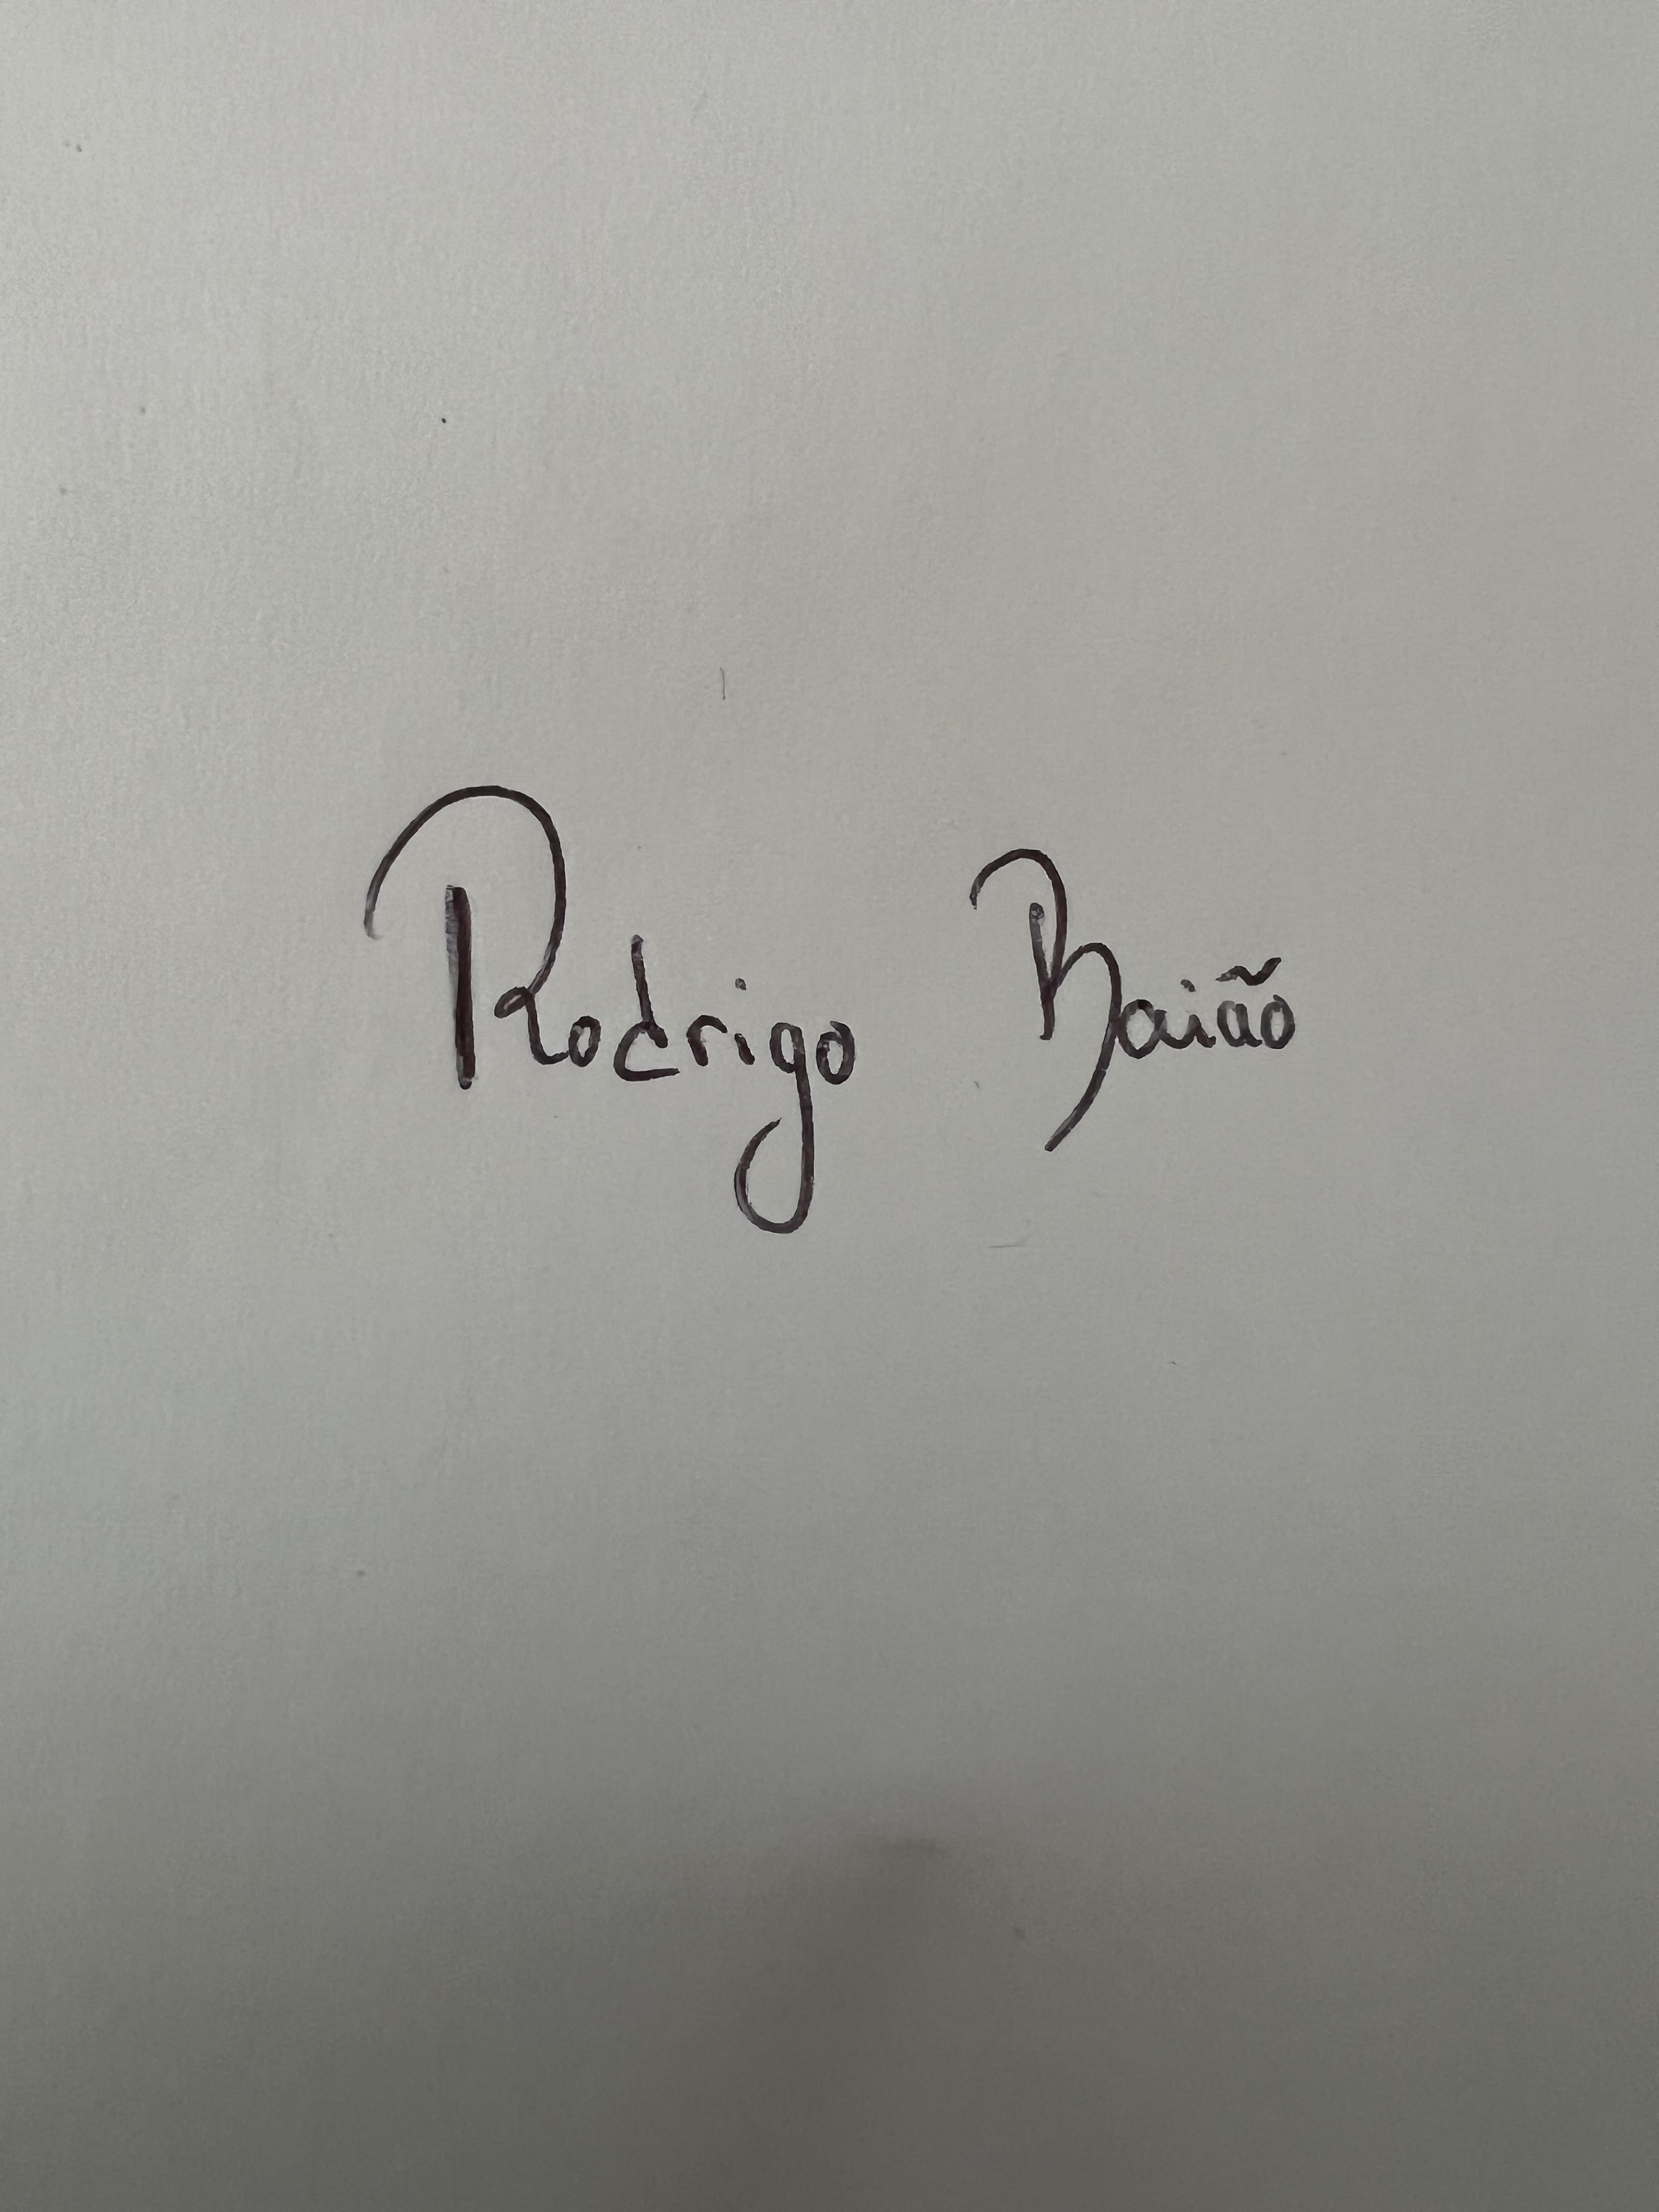 Rodrigo Baião